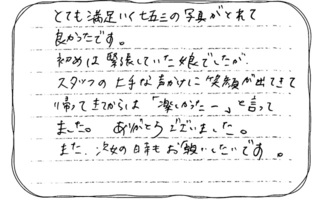 とても満足いく七五三の写真がとれて
良かったです。
初めは緊張していた娘でしたが、
スタッフの上手な声かけに笑顔が出てきて
帰ってきてからは「楽しかったー」と言って
ました。ありがとうございました。
また、次女の日もお願いしたいです。